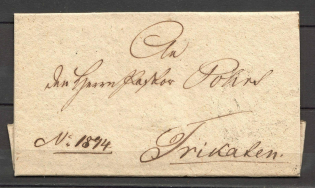 An
den Herrn Pastor Pohrt
No. 1894.
Trikaten.